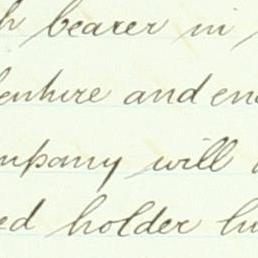 h bearer in
enture and en
mpany will
ed holder h